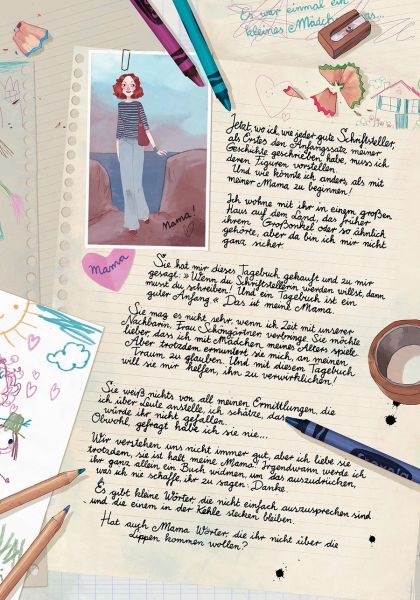 Es war einmal ein
kleines Mädchen, das...
Mama!
Mama
Jetzt, wo ich wie jeder gute Schriftsteller,
als Erstes den Anfangssatz meiner
Geschichte geschrieben habe, muss ich
deren Figuren vorstellen.
Und wie könnte ich anders, als mit
meiner Mama zu beginnen!
Ich wohne mit ihr in einem großen
Haus auf dem Land, das früher
ihrem Großonkel oder so ähnlich
gehörte, aber da bin ich mir nicht
ganz sicher.
Sie hat mir dieses Tagebuch gekauft und zu mir
gesagt: »Wenn du Schriftstellerin werden willst, dann
musst du schreiben! Und ein Tagebuch ist ein
guter Anfang.« Das ist meine Mama.
Sie mag es nicht sehr, wenn ich Zeit mit unserer
Nachbarin, Frau Schöngärtner verbringe. Sie möchte
lieber, dass ich mit Mädchen meines Alters spiele.
Aber trotzdem ermuntert sie mich, an meinen
Traum zu glauben. Und mit diesem Tagebuch
will sie mir helfen, ihn zu verwirklichen!
Sie weiß nichts von all meinen Ermittlungen, die
ich über Leute anstelle, ich schätze, das
würde ihr nicht gefallen.
Obwohl, gefragt habe ich sie nie...
Wir verstehen uns nicht immer gut, aber ich liebe sie
trotzdem, sie ist halt meine Mama! Irgendwann werde ich
ihr ganz allein ein Buch widmen, um das auszudrücken,
was ich nie schaffe, ihr zu sagen: Danke.
Es gibt kleine Wörter, die nicht einfach auszusprechen sind
und die einem in der Kehle stecken bleiben.
Hat auch Mama Wörter, die ihr nicht über die
Lippen kommen wollen?